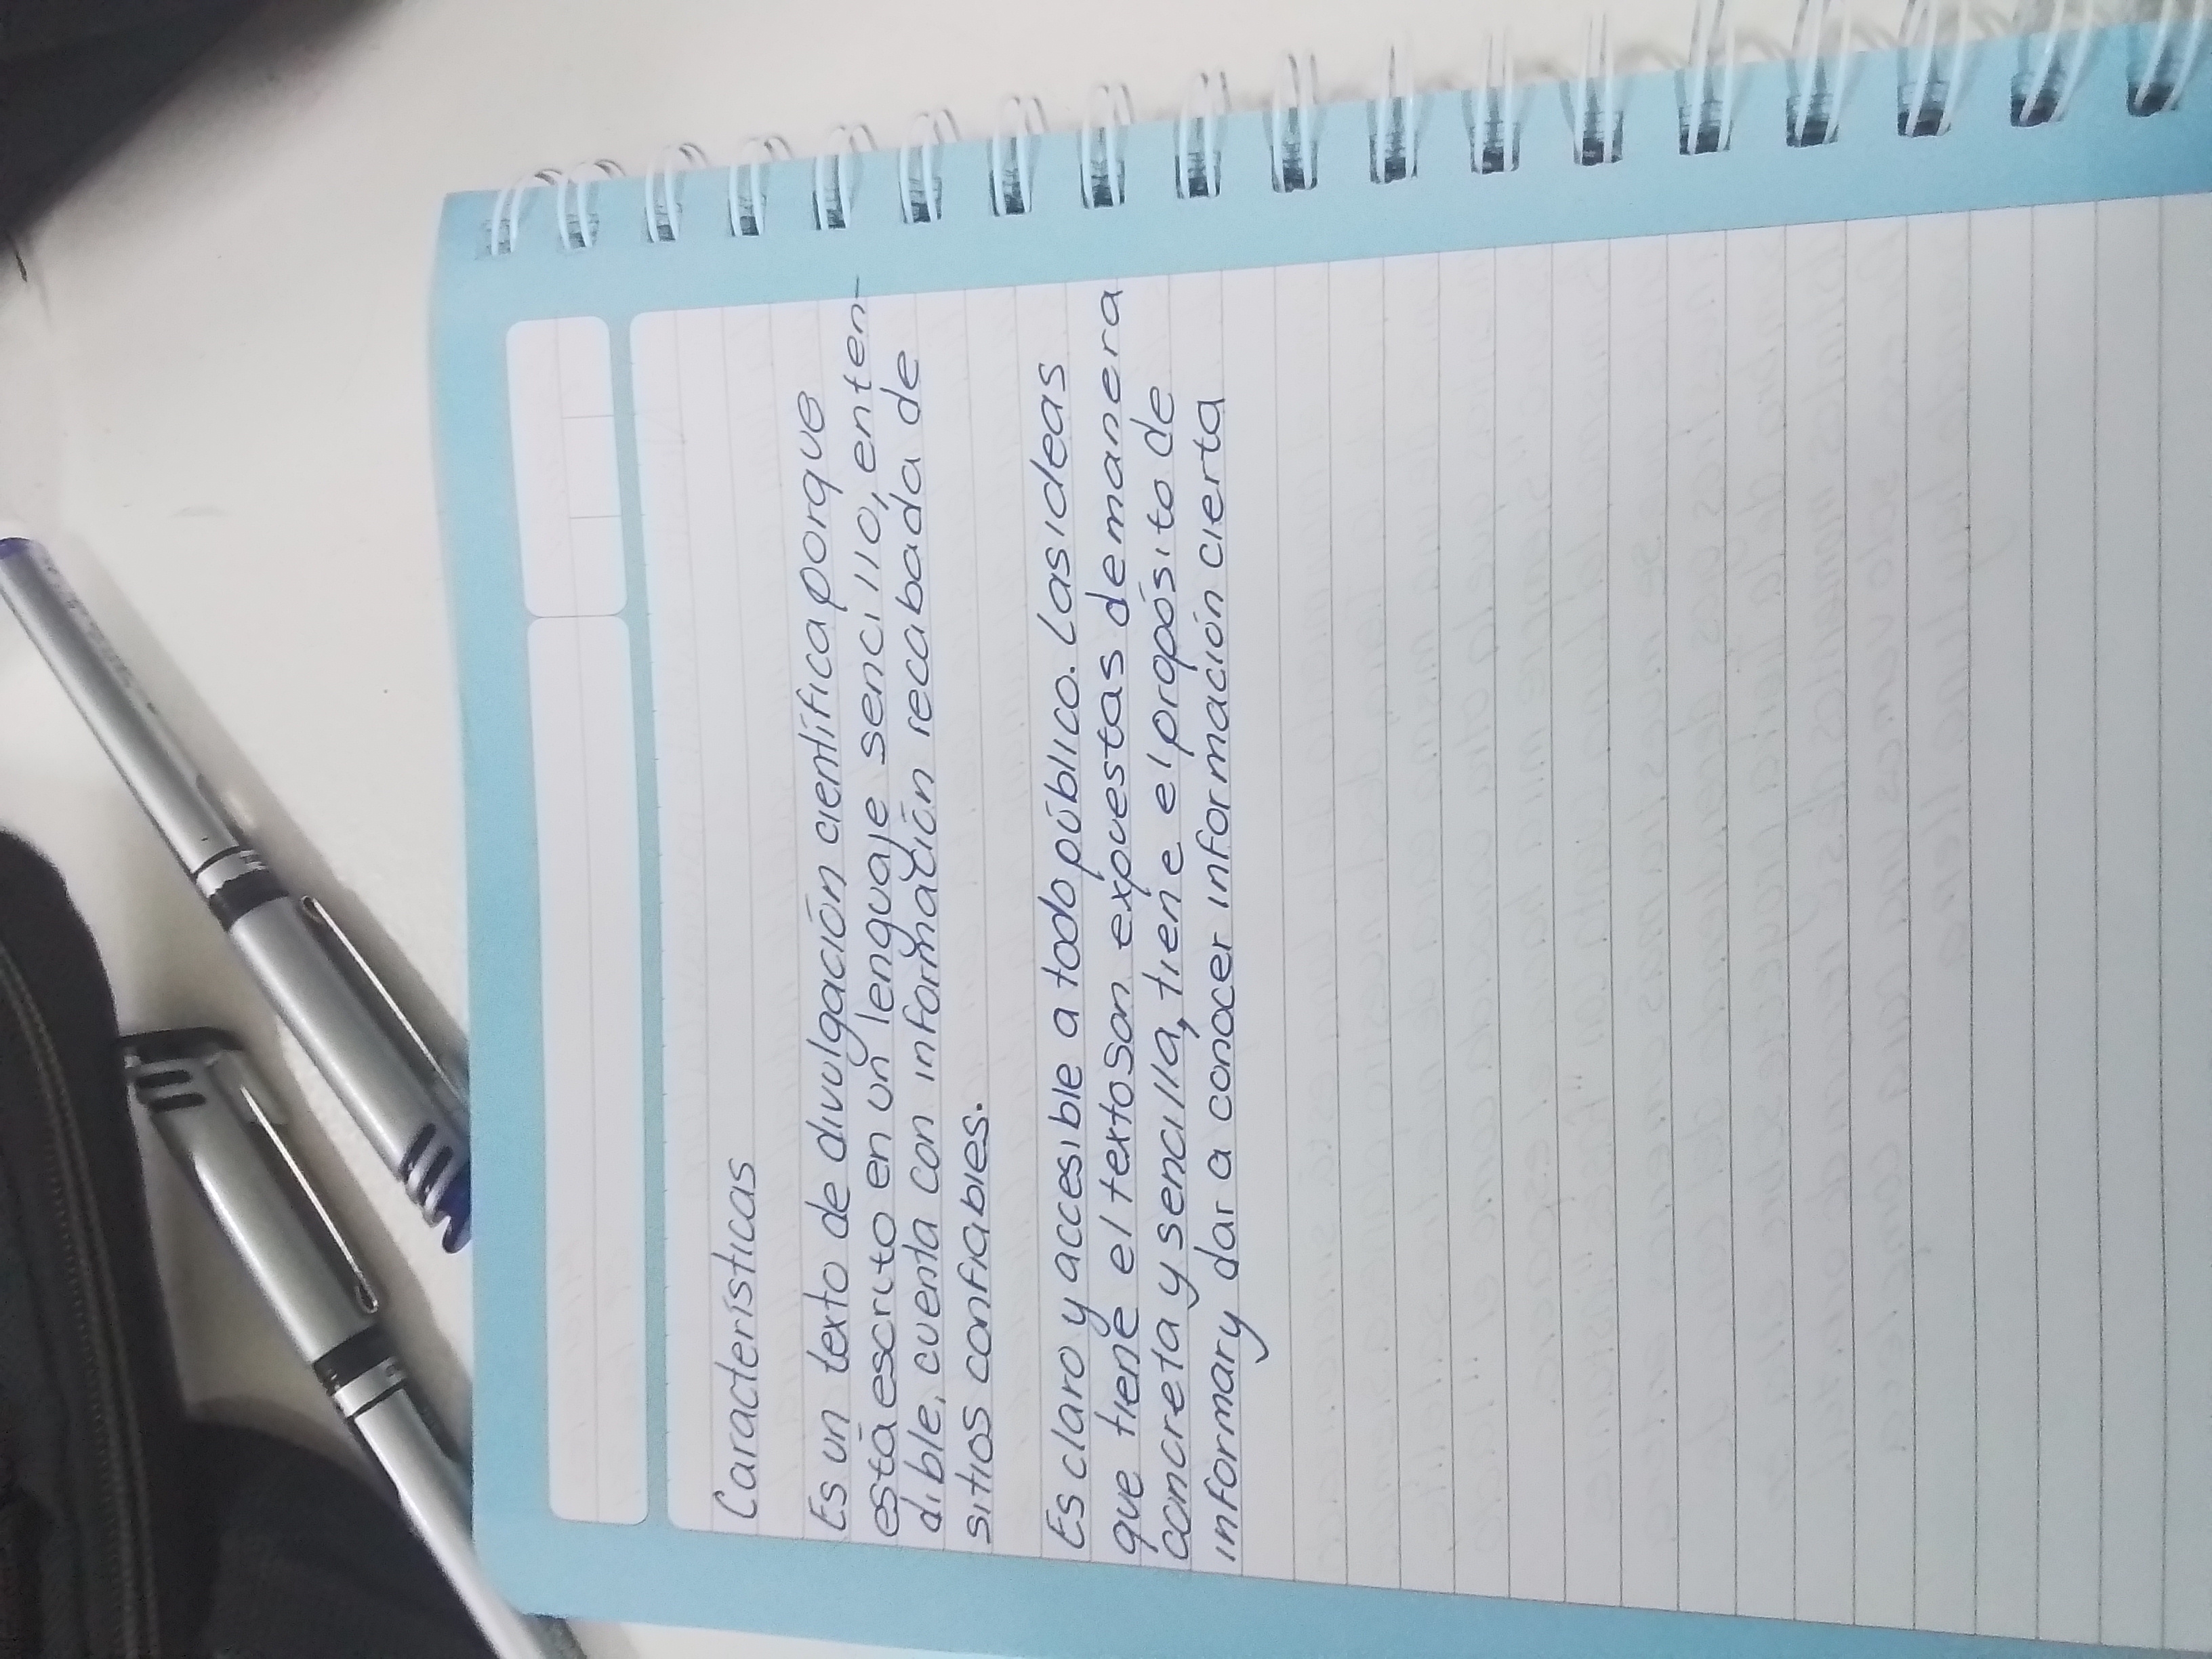 Características
Es un texto de divulgación científica porque
está escrito en un lenguaje sencillo, enten-
dible, cuenta con información recabada de
sitios confiables.
Es claro y accesible a todo público. Las ideas
que tiene el texto son expuestas de manera
concreta y sencilla, tiene el propósito de
informar y dar a conocer información cierta